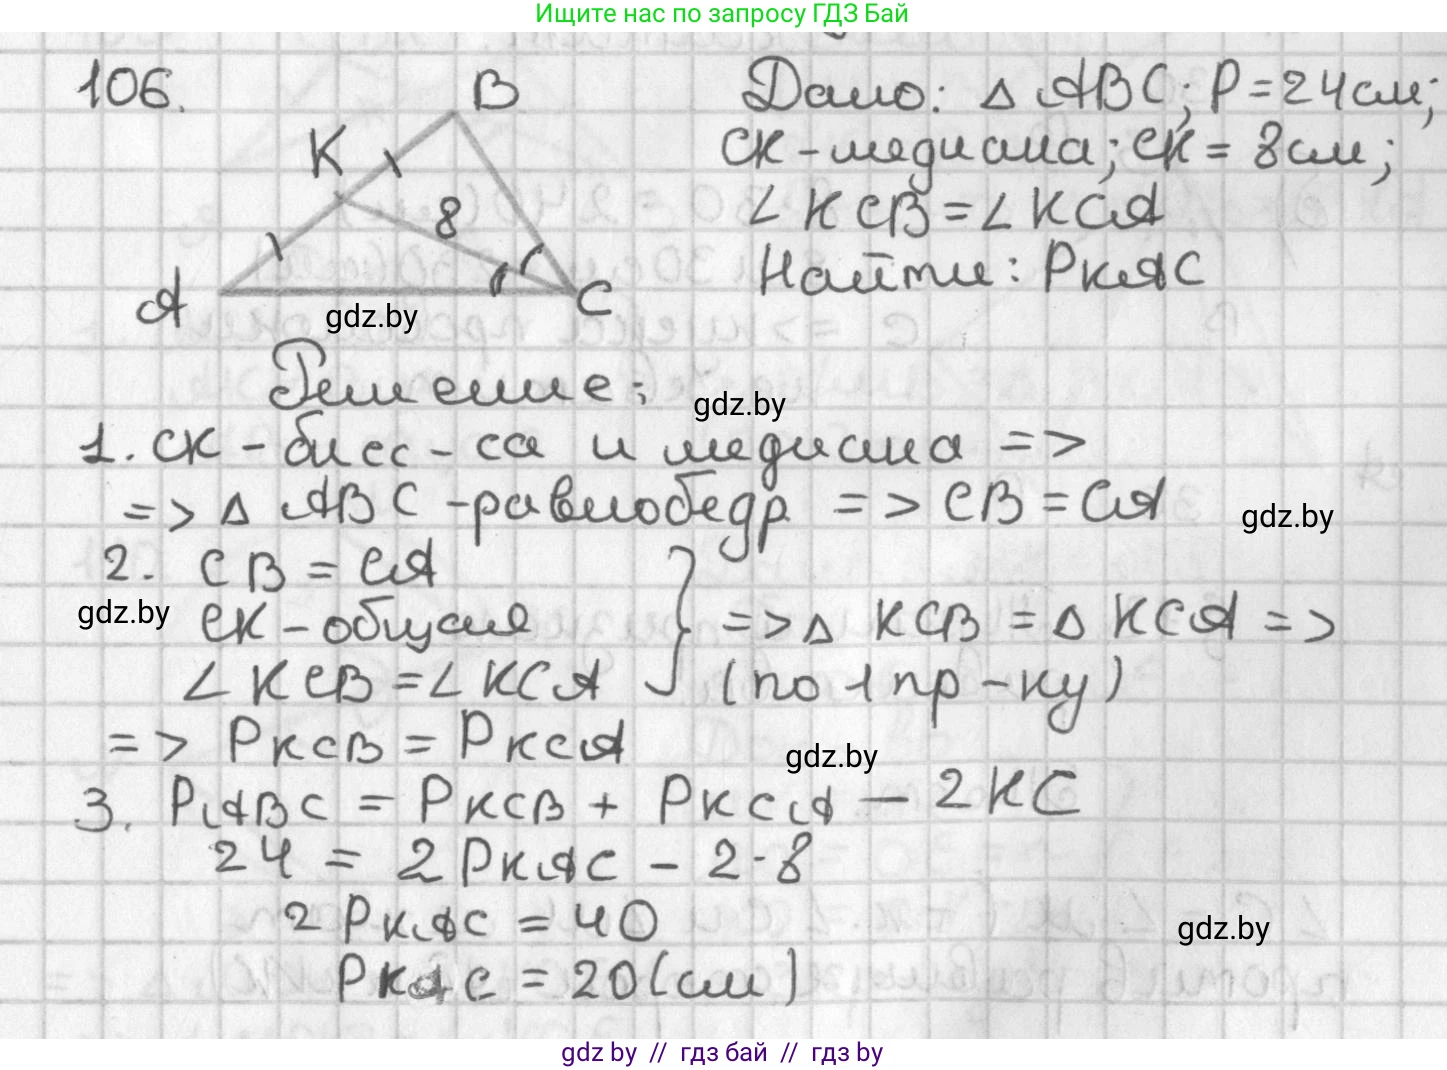 Ищите нас по запросу ГДЗ Бай
106.
B
K
8
A
C
gdz.by
Дано: △ ABC; P = 24см;
CK - медиана; CK = 8см;
∠ KCB = ∠ KCA
Найти: PKAC
Решение:
gdz.by
1. CK - бисс-са и медиана =>
=> △ ABC - равнобедр => CB = CA
gdz.by
2. CB = CA
gdz.by
CK - общая
∠ KCB = ∠ KCA
} => △ KCB = △ KCA =>
(по 1 пр-ку)
=> PKCB = PKCA
gdz.by
3. PABC = PKCB + PKCA - 2KC
24 = 2PKAC - 2·8
2PKAC = 40
gdz.by
PKAC = 20(см)
gdz by // гдз бай // гдз by